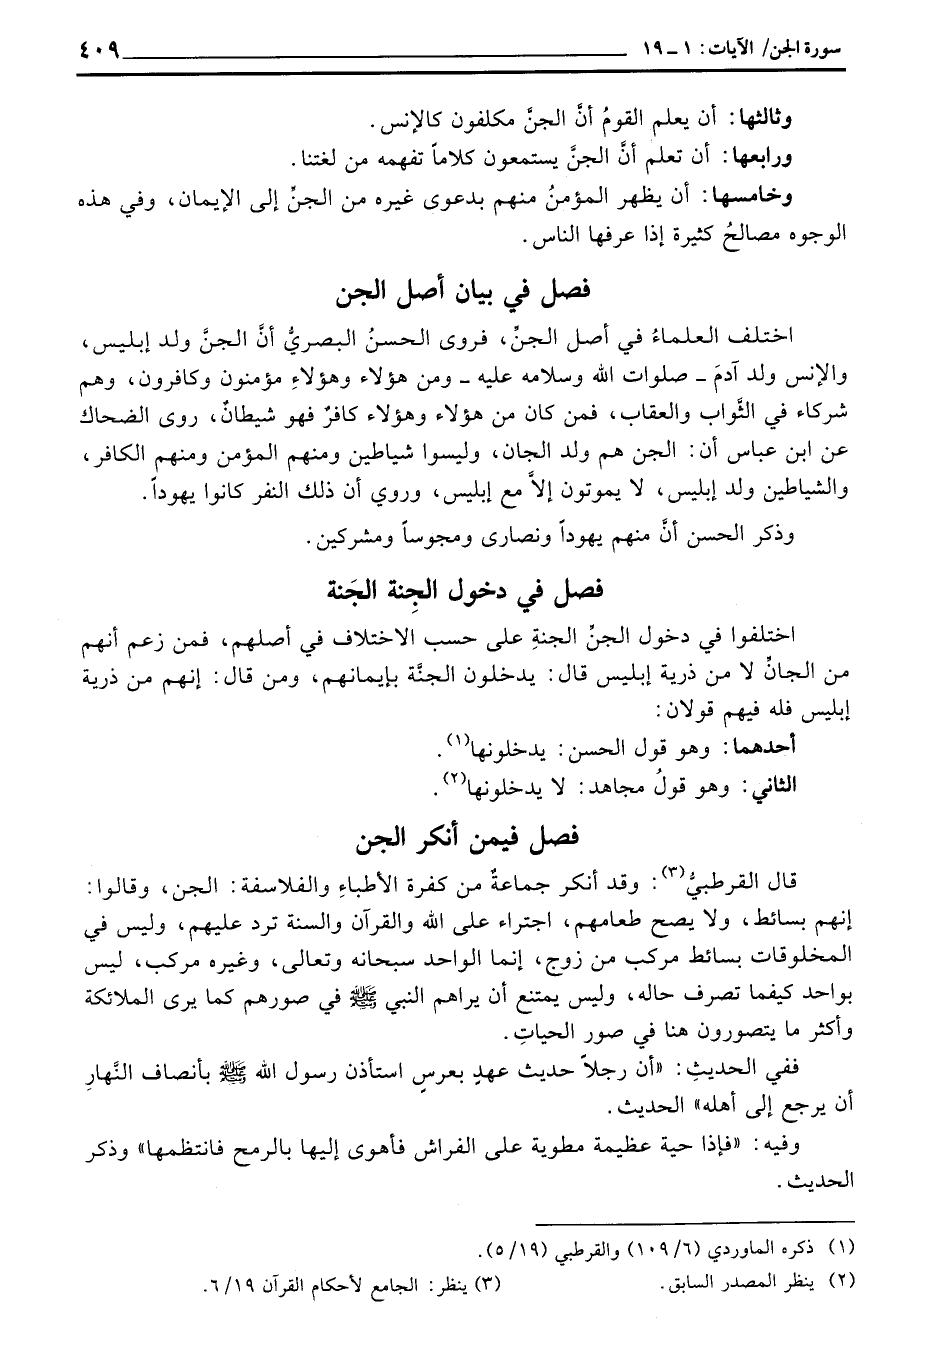 سورة الجن/ الآيات: ١ ـ ١٩ ٤٠٩
وثالثها: أن يعلم القومُ أنَّ الجنَّ مكلفون كالإنس.
ورابعها: أن تعلم أنَّ الجنَّ يستمعون كلاماً تفهمه من لغتنا.
وخامسها: أن يظهر المؤمنُ منهم بدعوى غيره من الجنِّ إلى الإيمان، وفي هذه
الوجوه مصالحُ كثيرة إذا عرفها الناس.
فصل في بيان أصل الجن
اختلف العلماءُ في أصل الجنِّ، فروى الحسنُ البصريُّ أنَّ الجنَّ ولد إبليس،
والإنس ولد آدمَ ـ صلوات الله وسلامه عليه ـ ومن هؤلاء وهؤلاءِ مؤمنون وكافرون، وهم
شركاء في الثَّواب والعقاب، فمن كان من هؤلاء وهؤلاء كافرٌ فهو شيطانٌ، روى الضحاك
عن ابن عباس أن: الجن هم ولد الجان، وليسوا شياطين ومنهم المؤمن ومنهم الكافر،
والشياطين ولد إبليس، لا يموتون إلاَّ مع إبليس، وروي أن ذلك النفر كانوا يهوداً.
وذكر الحسن أنَّ منهم يهوداً ونصارى ومجوساً ومشركين.
فصل في دخول الجِنة الجَنة
اختلفوا في دخول الجنِّ الجنةِ على حسب الاختلاف في أصلهم، فمن زعم أنهم
من الجانِّ لا من ذرية إبليس قال: يدخلون الجنَّة بإيمانهم، ومن قال: إنهم من ذرية
إبليس فله فيهم قولان:
أحدهما: وهو قول الحسن: يدخلونها(١).
الثاني: وهو قولُ مجاهد: لا يدخلونها(٢).
فصل فيمن أنكر الجن
قال القرطبيُّ(٣): وقد أنكر جماعةٌ من كفرة الأطباءِ والفلاسفة: الجن، وقالوا:
إنهم بسائط، ولا يصح طعامهم، اجتراء على الله والقرآن والسنة ترد عليهم، وليس في
المخلوقات بسائط مركب من زوج، إنما الواحد سبحانه وتعالى، وغيره مركب، ليس
بواحد كيفما تصرف حاله، وليس يمتنع أن يراهم النبي ﷺ في صورهم كما يرى الملائكة
وأكثر ما يتصورون هنا في صور الحياتِ.
ففي الحديثِ: «أن رجلاً حديث عهدٍ بعرسٍ استأذن رسول الله ﷺ بأنصاف النَّهارِ
أن يرجع إلى أهله» الحديث.
وفيه: «فإذا حية عظيمة مطوية على الفراش فأهوى إليها بالرمح فانتظمها» وذكر
الحديث.
(١) ذكره الماوردي (٦/ ١٠٩) والقرطبي (١٩/ ٥).
(٢) ينظر المصدر السابق. (٣) ينظر: الجامع لأحكام القرآن ١٩/ ٦.